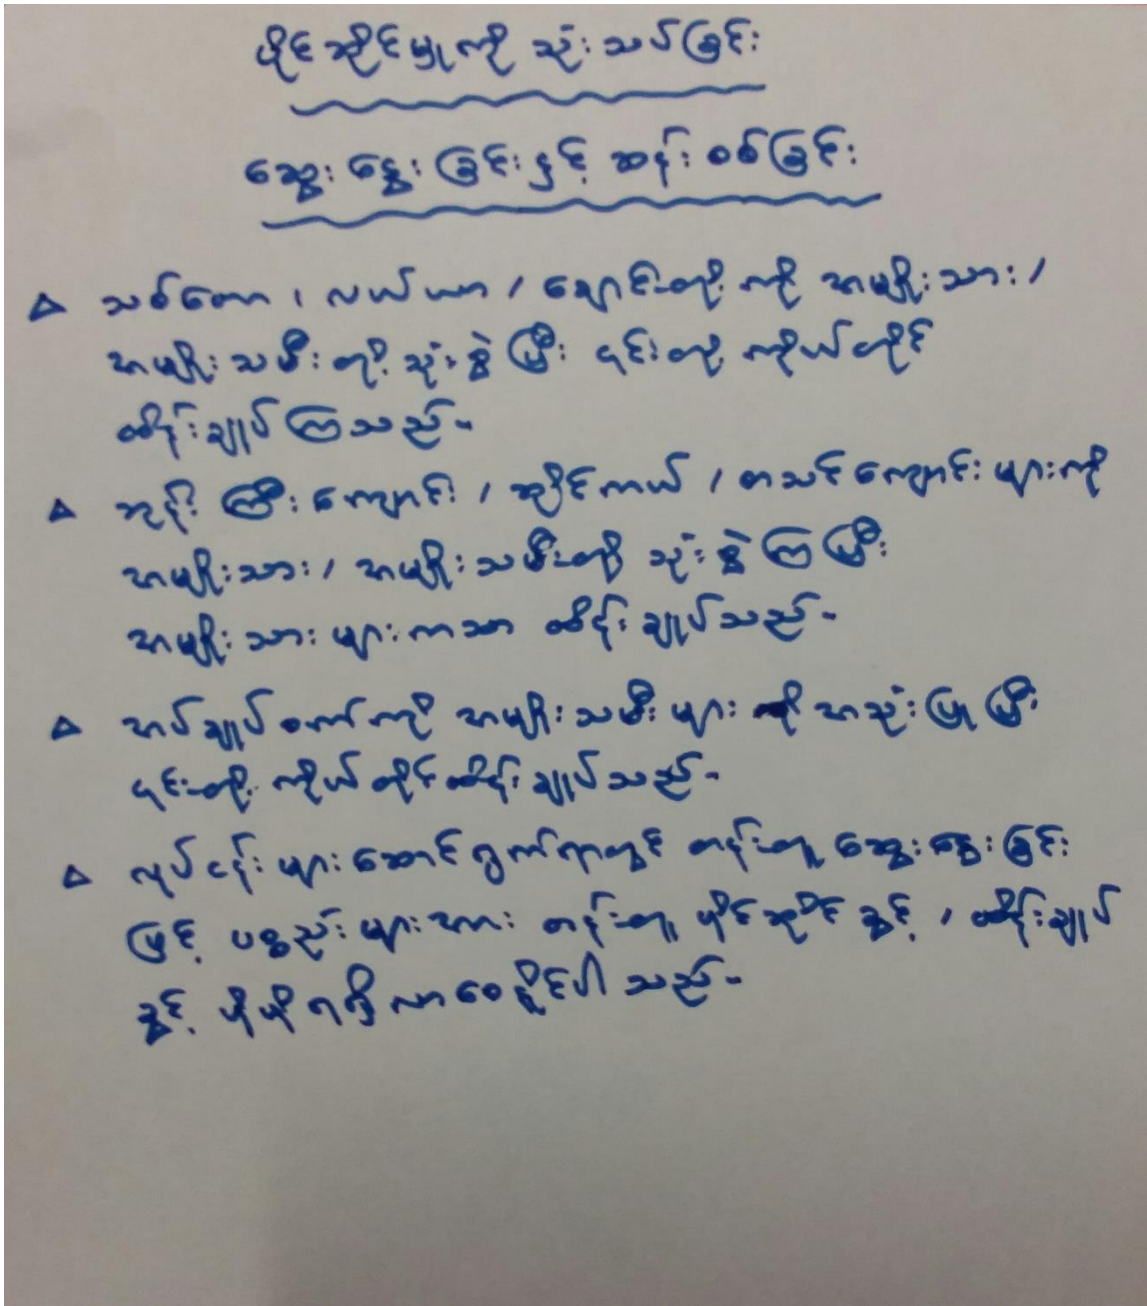 ပိုင်ဆိုင်မှုကို သုံးသပ်ခြင်း
ဆွေးနွေးခြင်းနှင့် ဆန်းစစ်ခြင်း
သစ်တော ၊ လယ်ယာ / ချောင်းတို့ကို အမျိုးသား /
အမျိုးသမီးတို့ သုံးစွဲပြီး ၎င်းတို့ ကိုယ်တိုင်
ထိန်းချုပ်ကြသည်-
ဘုန်းကြီးကျောင်း / ဆိုင်ကယ် / စာသင်ကျောင်းများကို
အမျိုးသား / အမျိုးသမီးတို့ သုံးစွဲကြပြီး
အမျိုးသားများကသာ ထိန်းချုပ်သည်-
အပ်ချုပ်စက်ကို အမျိုးသမီးများ အသုံးပြုပြီး
၎င်းတို့ ကိုယ်တိုင်ထိန်းချုပ်သည်-
လုပ်ငန်းများဆောင်ရွက်ရာတွင် တန်းတူ ဆွေးနွေးခြင်း
ဖြင့် ပစ္စည်းများအား တန်းတူ ပိုင်ဆိုင်ခွင့် / ထိန်းချုပ်
ခွင့် ပိုမိုရရှိလာစေနိုင်ပါသည်-